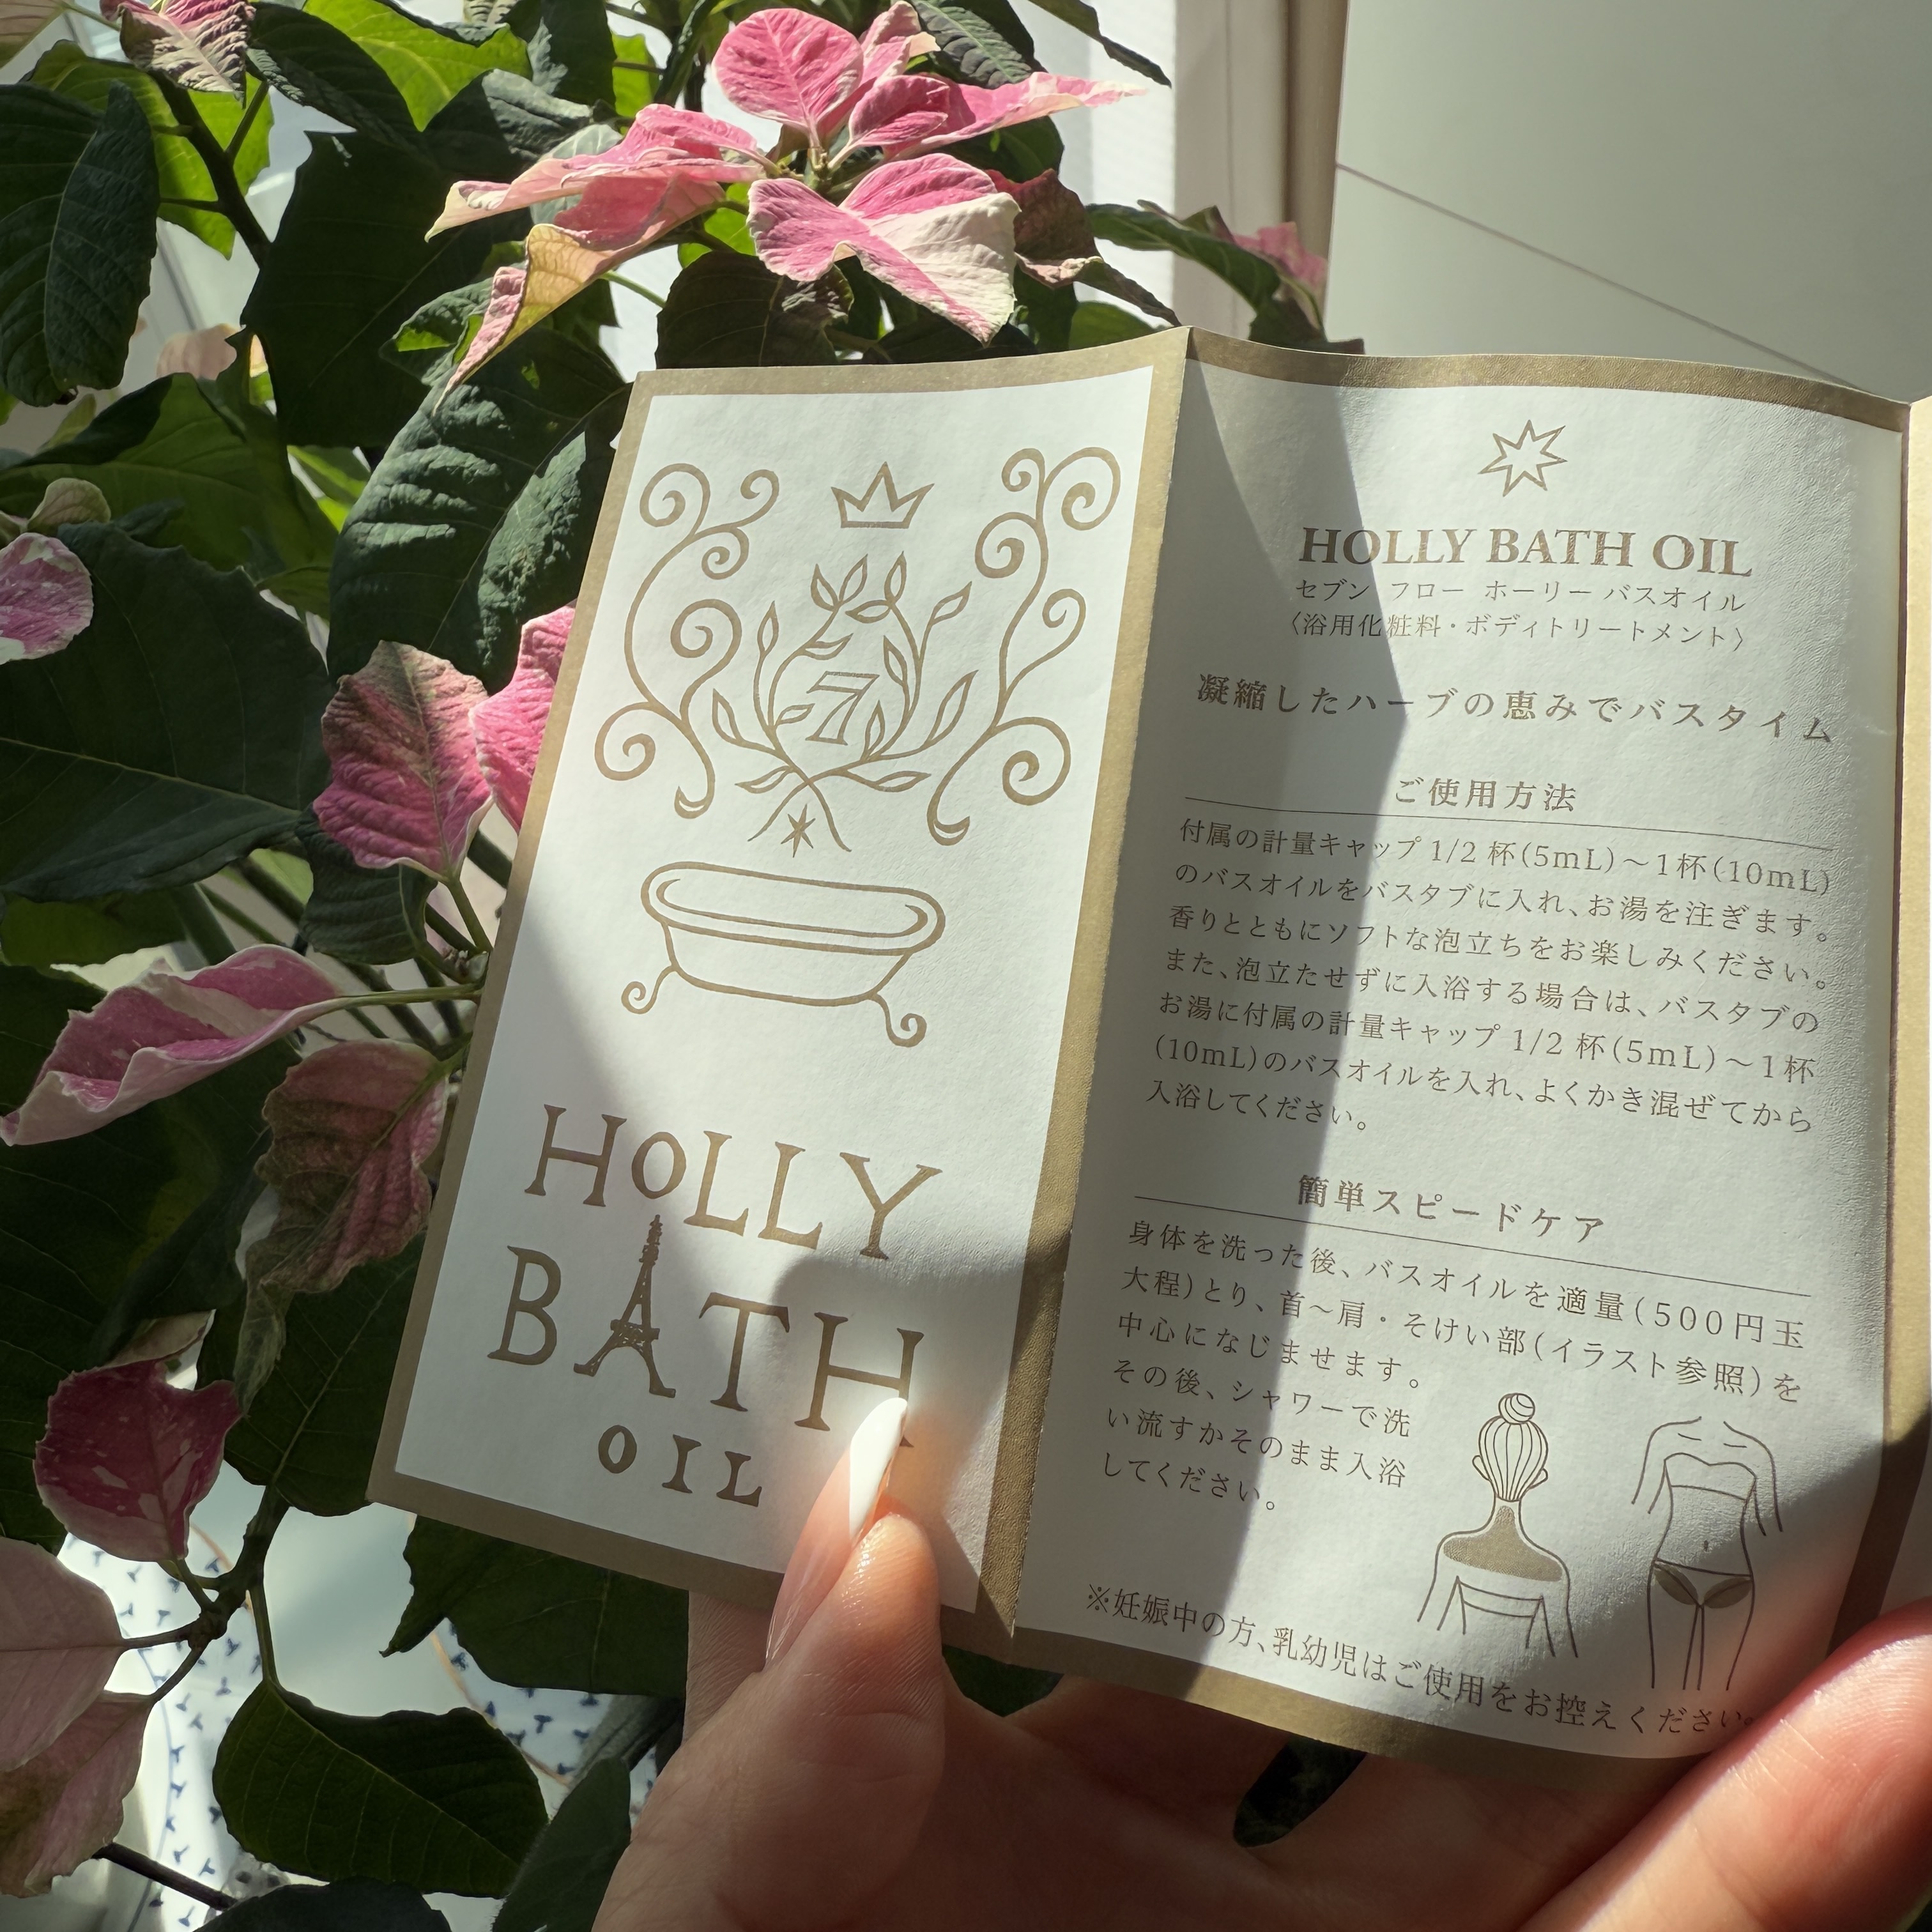 7
HOLLY
BATH
OIL
HOLLY BATH OIL
セブン フロー ホーリー バスオイル
〈浴用化粧料・ボディトリートメント〉
凝縮したハーブの恵みでバスタイム
ご使用方法
付属の計量キャップ 1/2 杯(5mL)～1杯(10mL)
のバスオイルをバスタブに入れ、お湯を注ぎます。
香りとともにソフトな泡立ちをお楽しみください。
また、泡立たせずに入浴する場合は、バスタブの
お湯に付属の計量キャップ 1/2 杯(5mL)～1杯
(10mL)のバスオイルを入れ、よくかき混ぜてから
入浴してください。
簡単スピードケア
身体を洗った後、バスオイルを適量(500円玉
大程)とり、首～肩・そけい部(イラスト参照)を
中心になじませます。
その後、シャワーで洗
い流すかそのまま入浴
してください。
※妊娠中の方、乳幼児はご使用をお控えください。